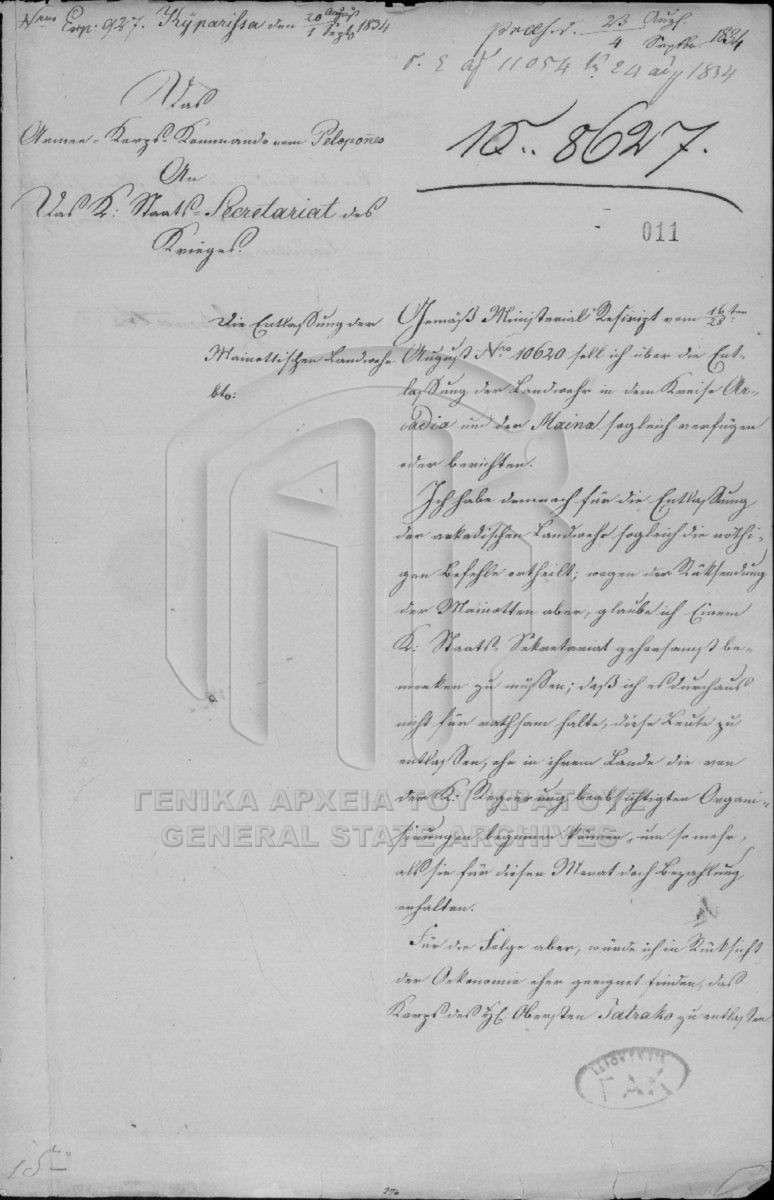 Nrus Exp. 927. Kyparissa den 20 August / 1 Septb 1834
praes. d. 23 Aug / 4 Septbr 1834
11054 24 1834
Das
Armee-Korps-Kommando vom Peloponnes
An
Das K: Staats-Secretariat des
Krieges.
No. 8627.
011
Die Entlassung der
Mainottischen Landwehr
btr:
Gemäß Ministerial Rescript vom 16/28ten
August Nro 10620 soll ich über die Ent-
lassung der Landwehr in dem Kreise Ar-
cadia und der Maina sogleich verfügen
oder berichten.
Ich habe demnach für die Entlassung
der arkadischen Landwehr sogleich die nöthi-
gen Befehle ertheilt; wegen der Rüksendung
der Mainotten aber, glaube ich Einem
K: Staats-Sekretariat gehorsamst be-
merken zu müssen; daß ich es durchaus
nicht für rathsam halte, diese Leute zu
entlassen, ehe in ihrem Lande die von
der K: Regierung beabsichtigten Organi-
sirungen begonnen haben, um so mehr,
als sie für diesen Monat doch Bezahlung
erhalten.
Für die Folge aber, würde ich in Rücksicht
der Oekonomie eher geeignet finden, das
Korps des H. Obersten Tatrako zu entlassen
ΓΕΝΙΚΑ ΑΡΧΕΙΑ ΤΟΥ ΚΡΑΤΟΥΣ
GENERAL STATE ARCHIVES
Γ.Α.Κ.
15